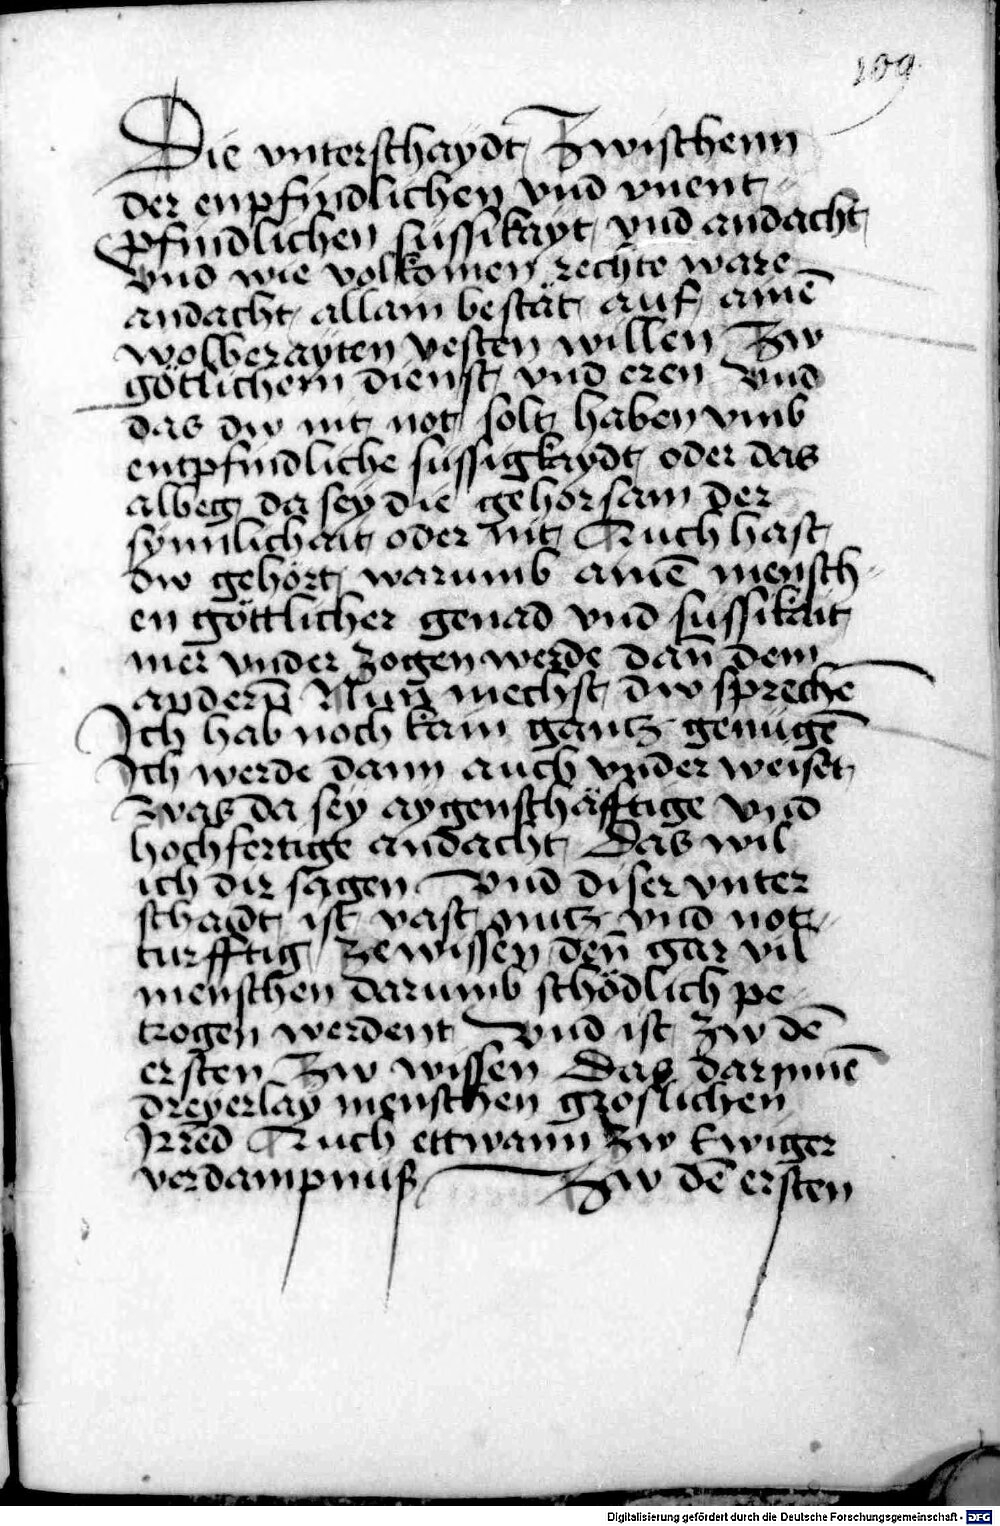 109
Die vnterschaydt Zwischenn
der enpfindlichen vnd vnent
pfindlichen süssikayt vnd andacht
vnd wie volkomen rechte ware
andacht allain bestät auf ainē
wolberayten vesten willen Zw
götlichem dienst vnd eren Vnd
das dw nit not solt haben vmb
entpfindliche süssigkaydt oder das
albeg da sey die gehorsam der
synnlichait oder nit Auch hast
dw gehört warumb ainē mensch
en göttlicher genad vnd süssikait
mer vnder zogen werde dan̄ dem
andern̄ Nun mechst dw sprechē
Ich hab noch kain gantz genügē
Ich werde dann auch vnder weiset
was da sey aygenschäfftige vnd
hochfertige andacht Das wil
ich dir sagen Vnd diser vnter
schaidt ist vast nutz vnd not
turfftig ze wissen den̄ gar vil
menschen darumb schödlich pe
trogen werdent Vnd ist zw dē
ersten Zw wissen Das darinnē
dreyerlay menschen groslichen
Irrēd Auch ettwann zw Ewiger
verdampnuß Zw dē ersten
Digitalisierung gefördert durch die Deutsche Forschungsgemeinschaft - DFG